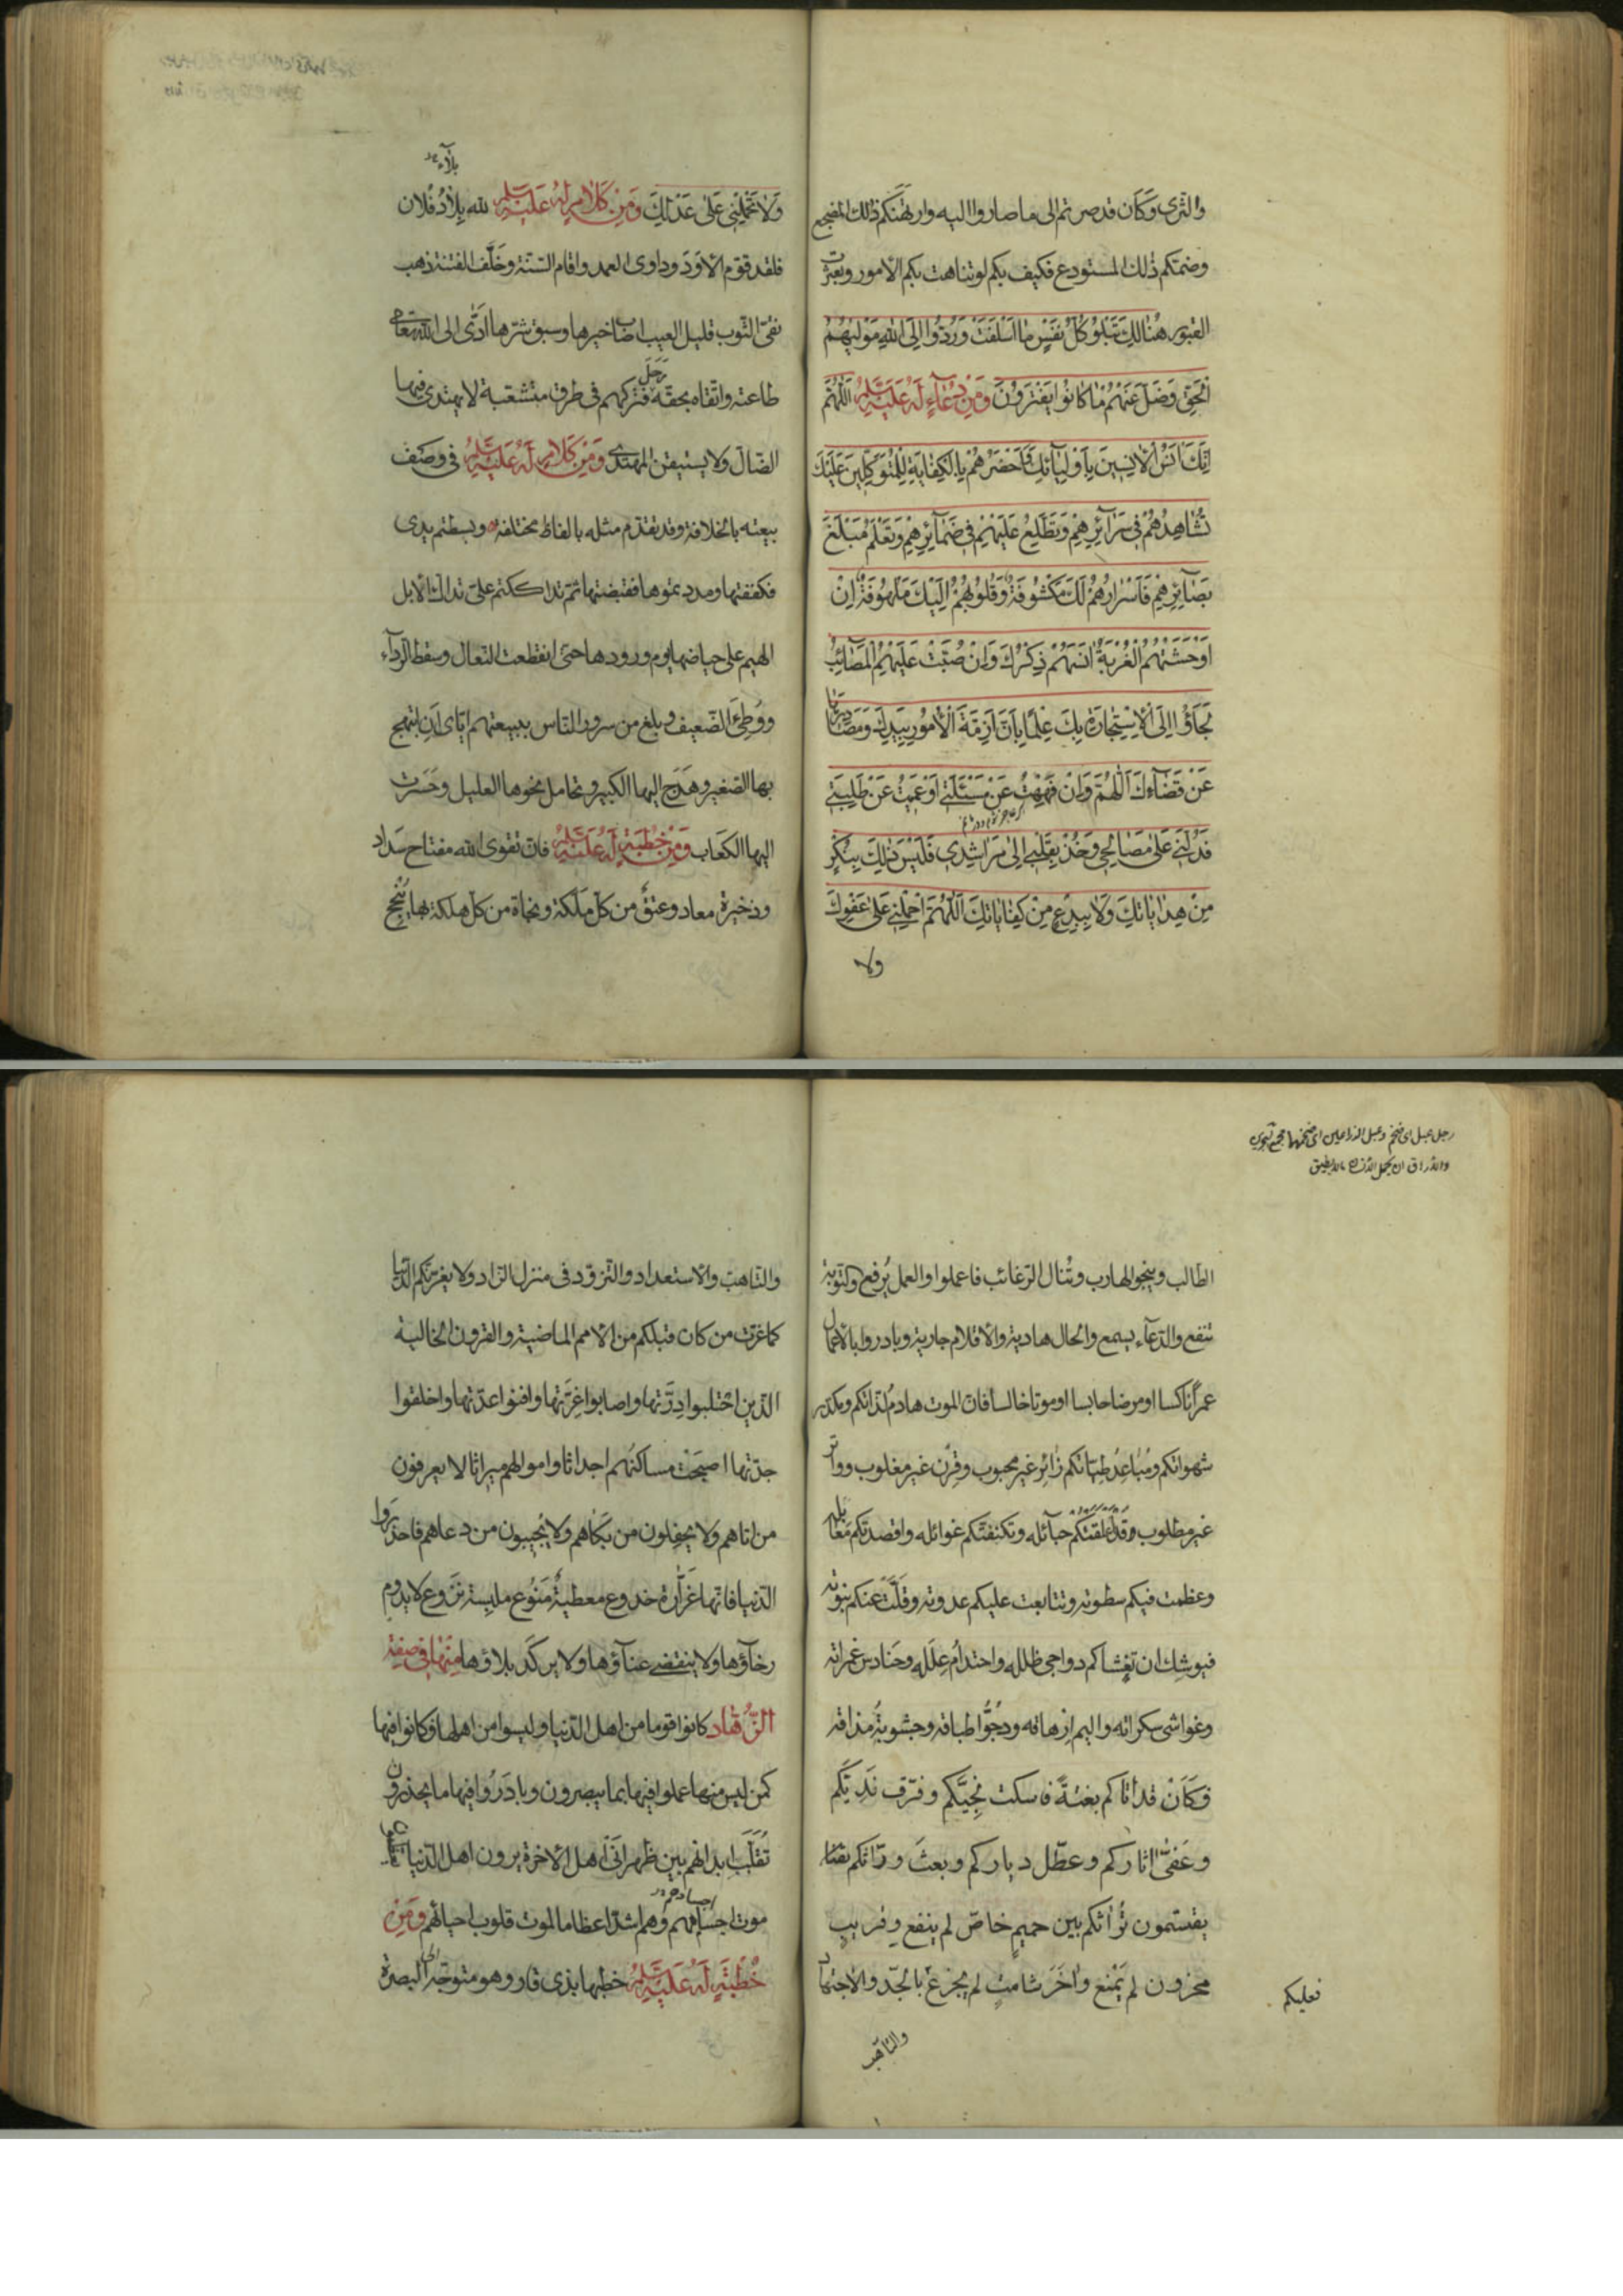 والثرى وكان قد صرتم الى ما صاروا اليه وارتهنكم ذلك المضجع
وضمتكم ذلك المستودع فكيف بكم لو تناهت بكم الامور وبعثرت
القبور هُنالِكَ تَبْلُو كُلُّ نَفْسٍ ما اَسْلَفَتْ وَرُدُّوا اِلَى اللهِ مَوْلٰيهُمُ
الْحَقِّ وَضَلَّ عَنْهُمْ ما كانُوا يَفْتَرُونَ وَمِنْ دُعاءٍ لَهُ عَلَيْهِ السَّلام اَللّٰهُمَّ
اِنَّكَ اٰنَسُ الْاٰنِسينَ بِاَوْلِيٰائِكَ وَاَحْضَرُهُمْ بِالْكِفٰايَةِ لِلْمُتَوَكِّلينَ عَلَيْكَ
تُشٰاهِدُهُمْ فى سَرٰائِرِهِمْ وَتَطَّلِعُ عَلَيْهِمْ فى ضَمٰائِرِهِمْ وَتَعْلَمُ مَبْلَغَ
بَصٰائِرِهِمْ فَاَسْرٰارُهُمْ لَكَ مَكْشُوفَةٌ وَقُلُوبُهُمْ اِلَيْكَ مَلْهُوفَةٌ اِنْ
اَوْحَشَتْهُمُ الْغُرْبَةُ اٰنَسَهُمْ ذِكْرُكَ وَاِنْ صُبَّتْ عَلَيْهِمُ الْمَصٰائِبُ
لَجَاَؤُا اِلَى الْاِسْتِجٰارَةِ بِكَ عِلْمًا بِاَنَّ اَزِمَّةَ الْاُمُورِ بِيَدِكَ وَمَصٰادِرَهٰا
عَنْ قَضٰاءِكَ اَللّٰهُمَّ وَاِنْ فَهِهْتُ عَنْ مَسْئَلَتى اَوْ عَمِيتُ عَنْ طَلِبَتى
فَدُلَّنى عَلىٰ مَصٰالِحى وَخُذْ بِقَلْبى اِلىٰ مَرٰاشِدى فَلَيْسَ ذٰلِكَ بِنُكْرٍ
مِنْ هِدٰايٰاتِكَ وَلا بِبِدْعٍ مِنْ كِفٰايٰاتِكَ اَللّٰهُمَّ احْمِلْنى عَلىٰ عَفْوِكَ
ولا
بلاء
وَلا تَحْمِلْنى عَلىٰ عَدْلِكَ وَمِنْ كَلٰامٍ لَهُ عَلَيْهِ السَّلام لله بِلادُ فُلان
فلقد قوّم الاَوَدَ وداوى العمد واقام السّنّة وخَلَّفَ الفتنة ذهب
نقىّ الثّوب قليل العيب اصاب خيرها وسبق شرّها ادّى الى الله تعالى
طاعته واتّقاه بحقّه رَحَلَ فتركهم فى طرق متشعّبة لا يهتدى فيها
الضّالّ ولا يستيقن المهتدى وَمِنْ كَلٰامٍ لَهُ عَلَيْهِ السَّلام فى وصف
بيعته بالخلافة وقد تقدّم مثله بالفاظ مختلفة وبسطتم يدى
فكففتها ومددتموها فقبضتها ثمّ تداككتم علىّ تداكّ الابل
الهيم على حياضها يوم ورودها حتى انقطعت النعال وسقط الرّداء
ووُطِئَ الضّعيف وبلغ من سرور النّاس ببيعتهم ايّاى اَنِ ابتهج
بها الصّغير وهَدَجَ اليها الكبير وتحامل نحوها العليل وحَسَرَت
اليها الكَعَاب وَمِنْ خُطْبَةٍ لَهُ عَلَيْهِ السَّلام فانّ تقوى الله مفتاح سَداد
وذخيرة معاد وعتقٌ من كلّ مَلَكة ونجاة من كلّ هلكة بها يُنْجِح
رجل عبل اى ضخم وعبل الذراعين اى ضخمهما
الطّالب وينجو الهارب وتُنال الرّغائب فاعملوا والعمل يُرفع والتّوبة
تنفع والدّعاء يسمع والحال هادية والاقلام جارية وبادروا بالاعمال
عمرًا ناكسا او مرضا حابسا او موتا خالسا فانّ الموت هادمُ لذّاتكم ومكدّر
شهواتكم ومُباعِدُ طيّاتكم زٰائِر غير محبوب وقِرْن غير مغلوب وواتر
غير مطلوب وقَدْ اَعْلَقَتْكُمْ حبائله وتكنّفتكم غوائله واقصدتكم مَعابله
وعظمت فيكم سطوته وتتابعت عليكم عدوته وقلّت عنكم نبوته
فيوشك ان تغشاكم دواجى ظلله واحتدامُ عِلَله وحَنادس غمراته
وغواشى سكراته واليم اِزهاقه ودُجُوُّ اطباقه وجشوبةُ مذاقه
فكَاَنْ قد اتاكم بغتةً فاسكت نَجِيَّكم وفرّق نَدِيَّكم
وعَفّىٰ اثاركم وعطّل دياركم وبعثَ ورّاثكم
يقتسمون تُراثكم بين حميمٍ خاصّ لم ينفع وقريبٍ
محزون لم يَمْنع وآخَرَ شامتٍ لم يجزع بالجّد والاجتهاد
فعليكم
والتأهّب
والتّاهّب والاستعداد والتّزوّد فى منزل الزّاد ولا يغرّنّكم الدّنيا
كما غرّت من كان قبلكم من الامم الماضية والقرون الخالية
الّذين احْتلبوا دِرَّتها واصابوا غِرَّتها وافنوا عدّتها واخلقوا
جدّتها اصبَحَتْ مساكنُهم اجداثا واموالهم ميراثا لا يعرفون
من اتاهم ولا يحفِلون من بَكاهم ولا يُجيبون من دعاهم فاحذروا
الدّنيا فانّها غَرّارة خدوع معطيةٌ مَنُوع ملبِسة نَزوع لا يدوم
رخاؤها ولا ينقضى عناؤها ولا يركد بلاؤها مِنْهٰا فى صِفَةِ
الزُّهّاد كانوا قوما من اهل الدّنيا وليسوا من اهلها فكانوا فيها
كمن ليس منها عملوا فيها بما يبصرون وبادَرُوا فيها ما يحذرون
تُقَلَّبُ ابدانهم بين ظهرانَىْ اهل الاخرة يرون اهل الدّنيا
موت اجسامهم اجسادهم وهم اشدّ اعظاما لموت قلوب احيائهم وَمِنْ
خُطْبَةٍ لَهُ عَلَيْهِ السَّلام خطبها بذى قار وهو متوجّه الى البصرة